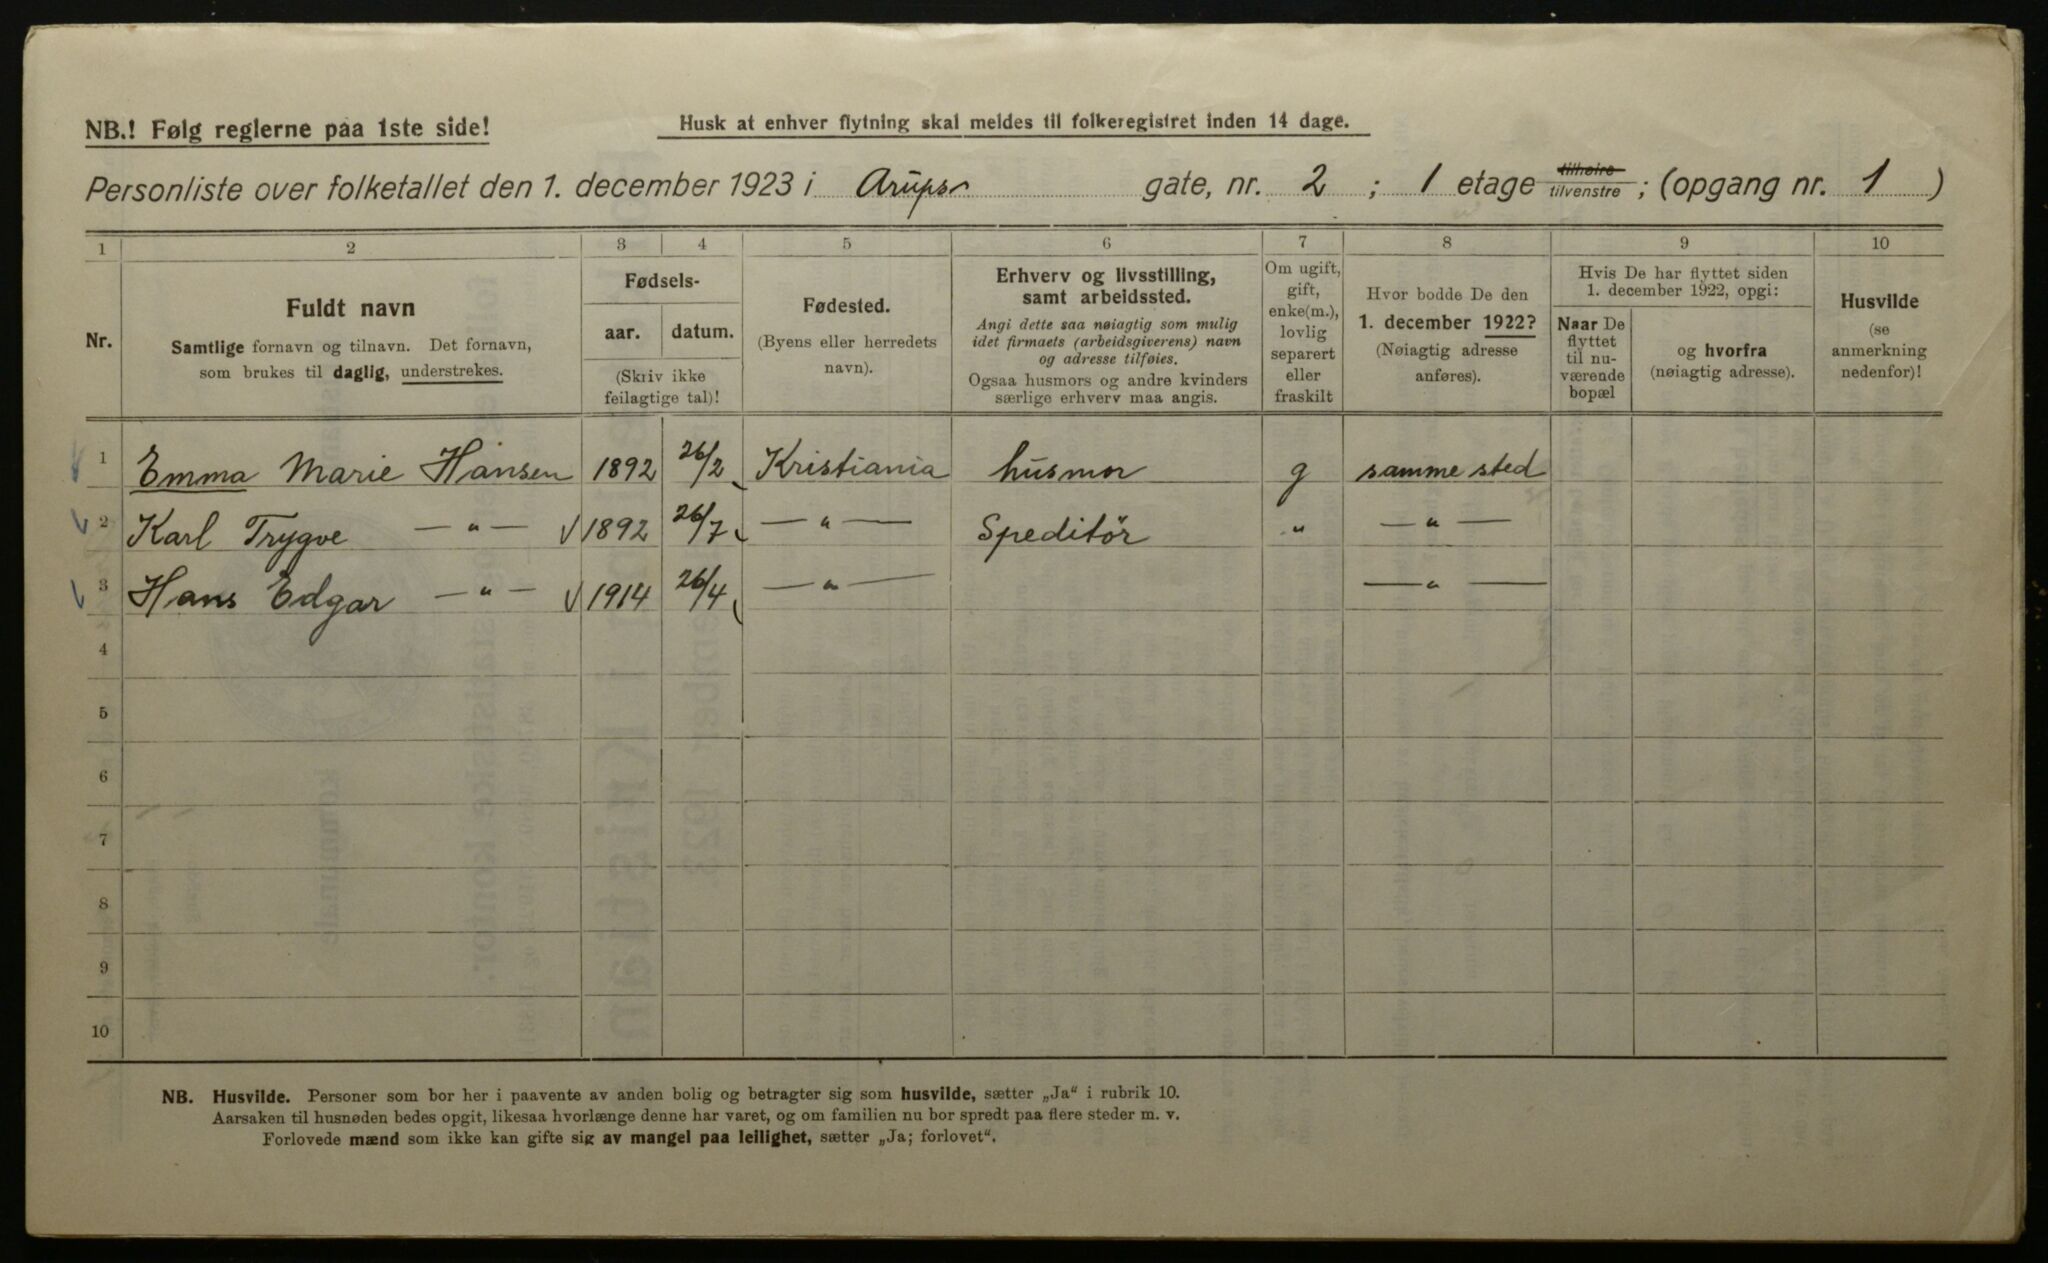 NB.! Følg reglerne paa 1ste side!
Husk at enhver flytning skal meldes til folkeregistret inden 14 dage.
Personliste over folketallet den 1. december 1923 i Arups gate, nr. 2 ; 1 etage tilhøire tilvenstre ; (opgang nr. 1 )
1 2 3 4 5 6 7 8 9 10
Nr.
Fuldt navn
Samtlige fornavn og tilnavn. Det fornavn,
som brukes til daglig, understrekes.
Fødsels-
aar. datum.
(Skriv ikke
feilagtige tal)!
Fødested.
(Byens eller herredets
navn).
Erhverv og livsstilling,
samt arbeidssted.
Angi dette saa nøiagtig som mulig
idet firmaets (arbeidsgiverens) navn
og adresse tilføies.
Ogsaa husmors og andre kvinders
særlige erhverv maa angis.
Om ugift,
gift,
enke(m.),
lovlig
separert
eller
fraskilt
Hvor bodde De den
1. december 1922?
(Nøiagtig adresse
anføres).
Hvis De har flyttet siden
1. december 1922, opgi:
Naar De
flyttet
til nu-
værende
bopæl
og hvorfra
(nøiagtig adresse).
Husvilde
(se
anmerkning
nedenfor)!
1 Emma Marie Hansen 1892 26/2 Kristiania husmor g samme sted
2 Karl Trygve — „ — 1892 26/7 — „ — Speditör „ — „ —
3 Hans Edgar — „ — 1914 26/4 — „ — — „ —
4
5
6
7
8
9
10
NB. Husvilde. Personer som bor her i paavente av anden bolig og betragter sig som husvilde, sætter „Ja“ i rubrik 10.
Aarsaken til husnøden bedes opgit, likesaa hvorlænge denne har varet, og om familien nu bor spredt paa flere steder m. v.
Forlovede mænd som ikke kan gifte sig av mangel paa leilighet, sætter „Ja; forlovet“.